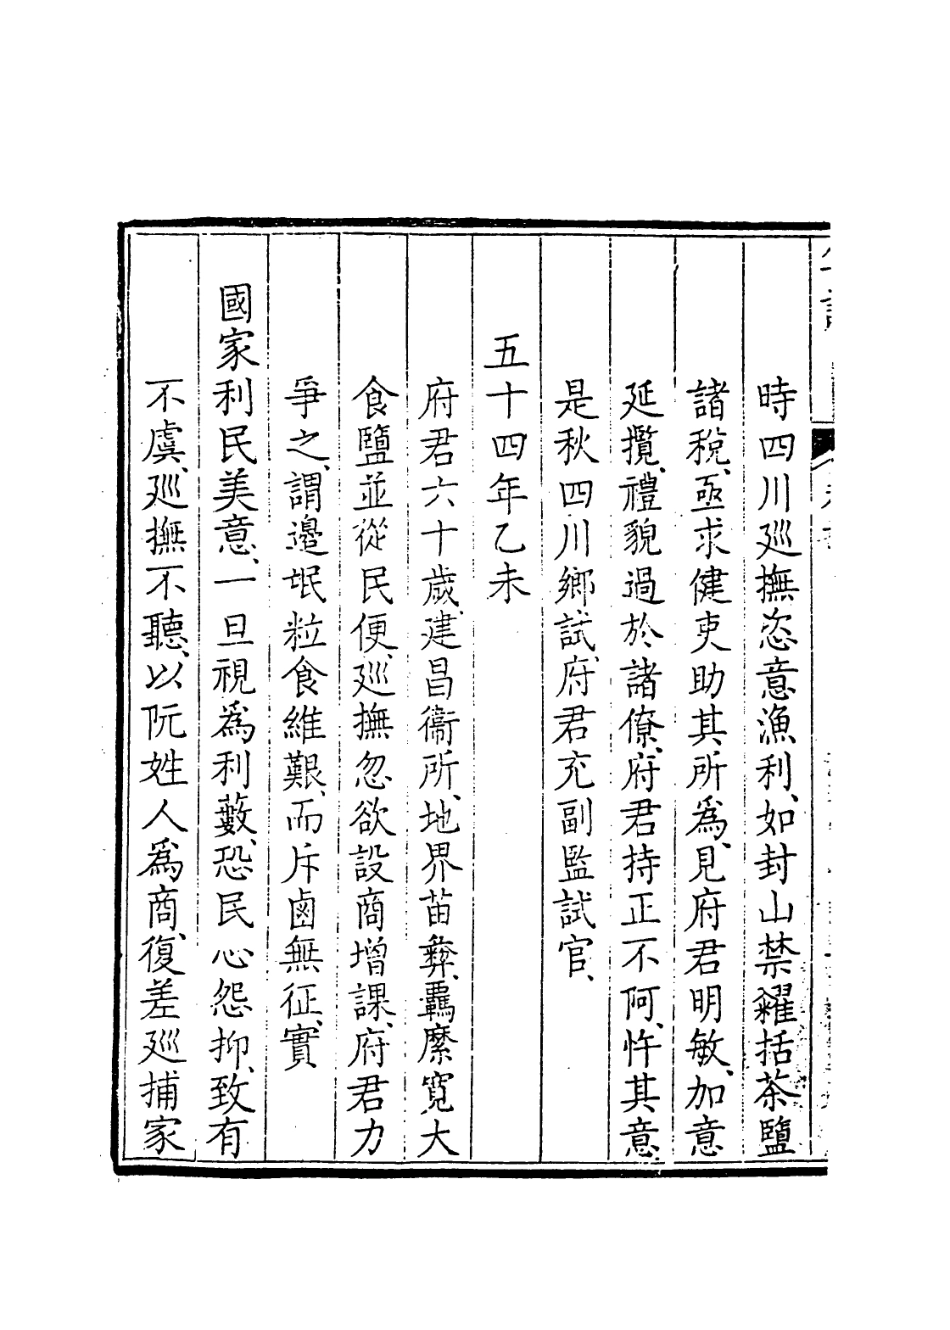 時四川巡撫恣意漁利、如封山禁糴括茶鹽
諸稅、亟求健吏助其所為、見府君明敏、加意
延攬、禮貌過於諸僚、府君持正不阿、忤其意、
是秋四川鄉試、府君充副監試官、
五十四年乙未
府君六十歲、建昌衞所、地界苗彝、羈縻寬大
食鹽並從民便、巡撫忽欲設商增課、府君力
爭之、謂邊氓粒食維艱、而斥鹵無征、實
國家利民美意、一旦視為利藪、恐民心怨抑、致有
不虞、巡撫不聽、以阮姓人為商、復差巡捕家